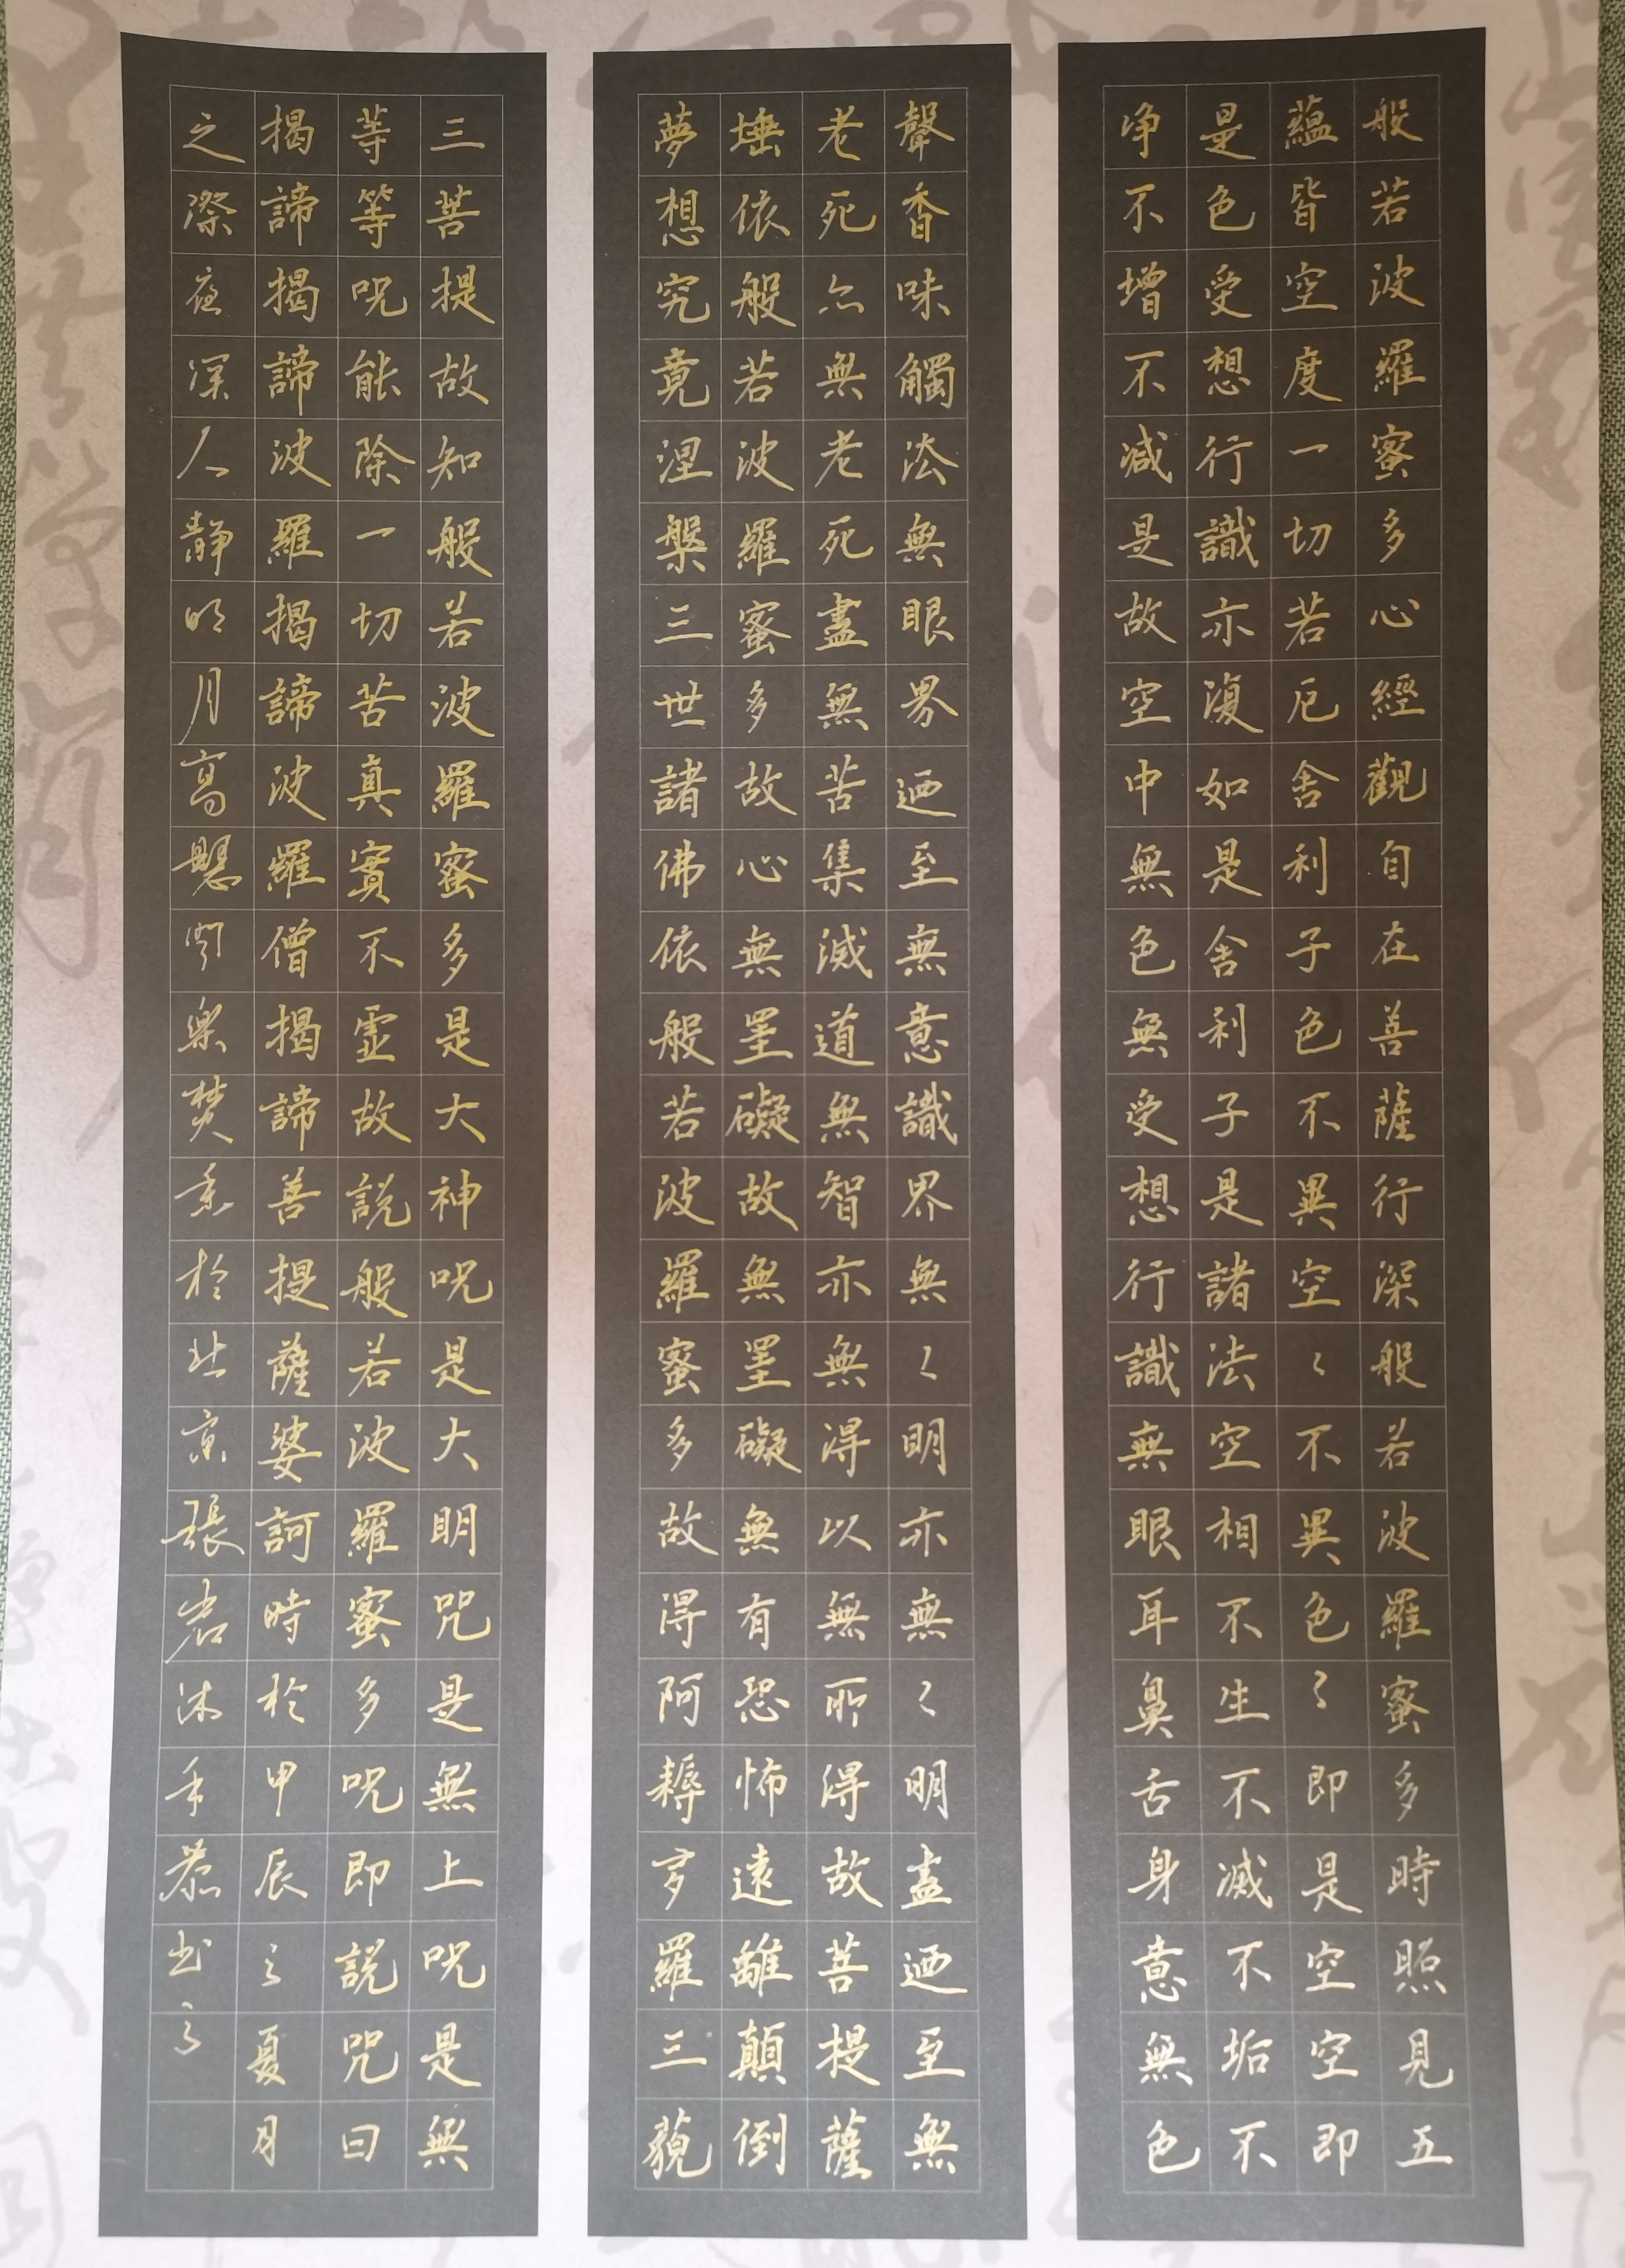 般若波羅蜜多心經觀自在菩薩行深般若波羅蜜多時照見五
蘊皆空度一切若厄舍利子色不異空〻不異色〻即是空空即
是色受想行識亦復如是舍利子是諸法空相不生不滅不垢不
净不增不減是故空中無色無受想行識無眼耳鼻舌身意無色
聲香味觸法無眼界迺至無意識界無〻明亦無〻明盡迺至無
老死亦無老死盡無苦集滅道無智亦無得以無所得故菩提薩
埵依般若波羅蜜多故心無罣礙故無罣礙無有恐怖遠離顛倒
夢想究竟涅槃三世諸佛依般若波羅蜜多故得阿耨多羅三藐
三菩提故知般若波羅蜜多是大神咒是大明咒是無上咒是無
等等咒能除一切苦真實不虛故說般若波羅蜜多咒即說咒曰
揭諦揭諦波羅揭諦波羅僧揭諦菩提薩婆訶時於甲辰之夏月
之際夜深人靜明月高懸聞樂焚香於北京張岩沐手恭書之